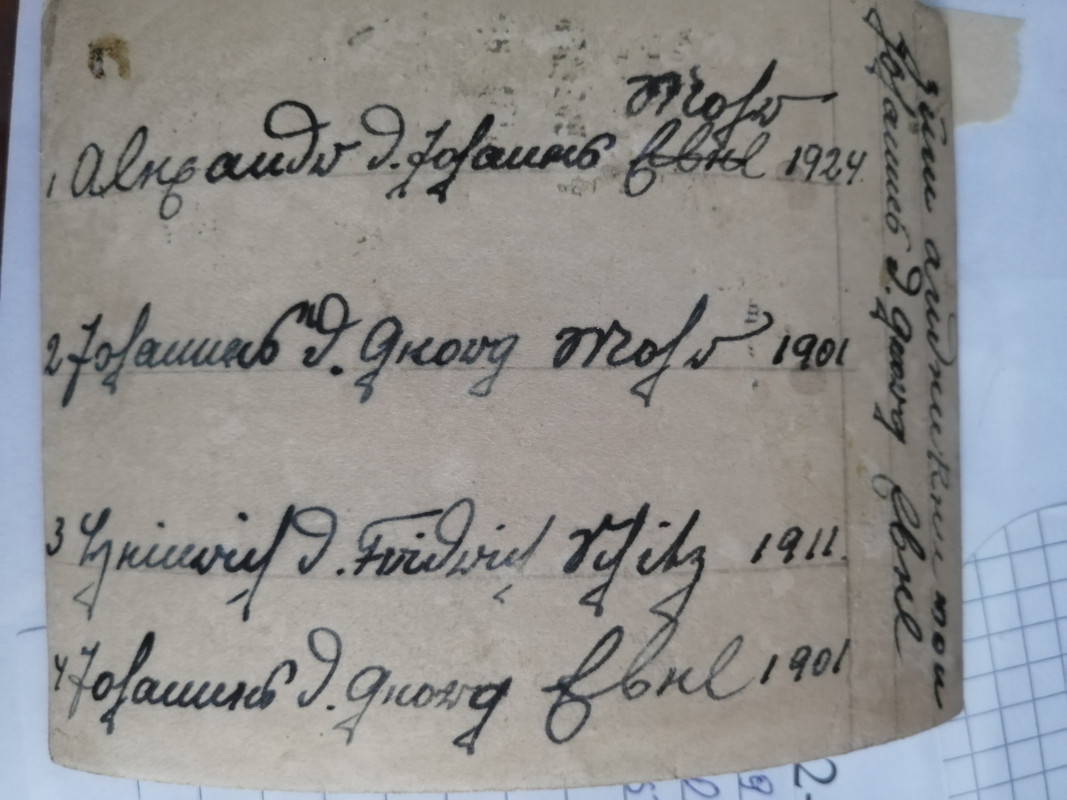 Mohr
1 Alexander d. Johannes Ebel 1924.
2 Johannes d. Georg Mohr 1901
3 Heinrich d. Fridrich Schitz 1911.
4 Johannes d. Georg Ebel 1901
Zum andenken von
Johannes d. Georg Ebel